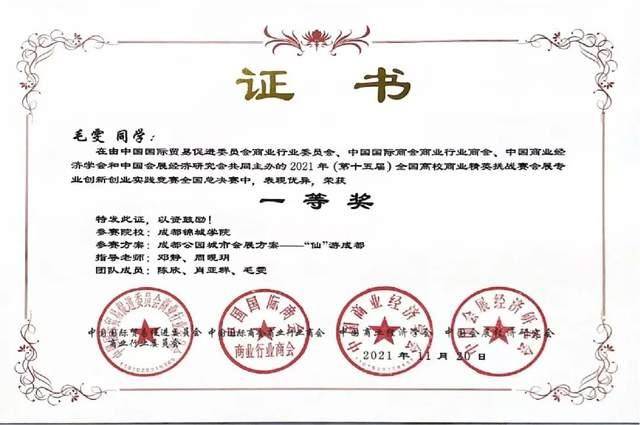 证书
毛雯 同学：
在由中国国际贸易促进委员会商业行业委员会、中国国际商会商业行业商会、中国商业经
济学会和中国会展经济研究会共同主办的 2021 年（第十五届）全国高校商业精英挑战赛会展专
业创新创业实践竞赛全国总决赛中，表现优异，荣获
一等奖
特发此证，以资鼓励！
参赛院校：成都锦城学院
参赛方案：成都公园城市会展方案——“仙”游成都
指导老师：邓静、周岘玥
团队成员：陈欣、肖亚群、毛雯
中国国际贸易促进委员会 中国国际商会商业行业商会 中国商业经济学会 中国会展经济研究会
商业行业委员会
商业行业商会
2021 年 11 月 20 日